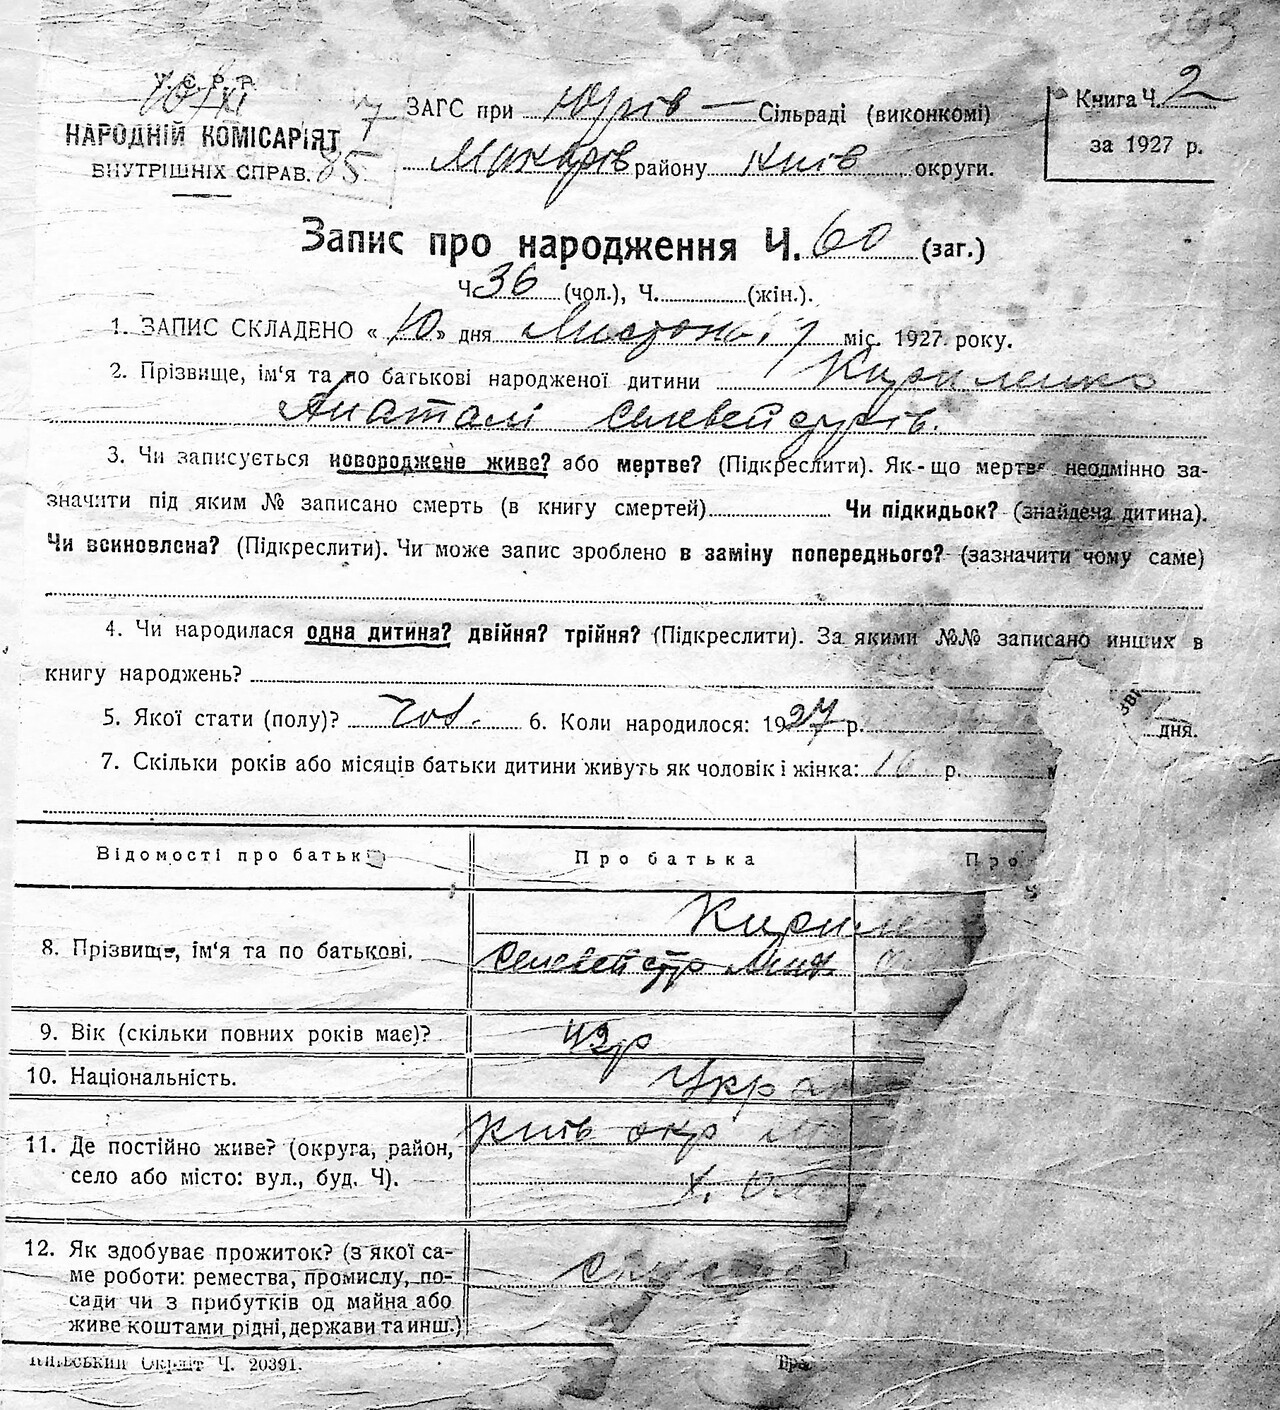 293
У. С. Р. Р.
10/XI 7
НАРОДНІЙ КОМІСАРІЯТ
ВНУТРІШНІХ СПРАВ. 85
ЗАГС при Юрів — Сільраді (виконкомі)
Макарів району Київ округи.
Книга Ч. 2
за 1927 р.
Запис про народження Ч. 60 (заг.)
Ч 36 (чол.), Ч. (жін.).
1. ЗАПИС СКЛАДЕНО « 10 » дня міс. 1927 року.
2. Прізвище, ім'я та по батькові народженої дитини Кириленко
Анаталі Селевейстрів.
3. Чи записується новороджене живе? або мертве? (Підкреслити). Як-що мертве неодмінно за-
значити під яким № записано смерть (в книгу смертей) Чи підкидьок? (знайдена дитина).
Чи всиновлена? (Підкреслити). Чи може запис зроблено в заміну попереднього? (зазначити чому саме)
4. Чи народилася одна дитина? двійня? трійня? (Підкреслити). За якими №№ записано инших в
книгу народжень?
5. Якої стати (полу)? чол. 6. Коли народилося: 1927 р. дня.
7. Скільки років або місяців батьки дитини живуть як чоловік і жінка: 16 р.
Відомості про батьк
Про батька
Про
8. Прізвище, ім'я та по батькові.
Кириле
Селевейстр
9. Вік (скільки повних років має)? 42 р
10. Національність. Укра
11. Де постійно живе? (округа, район,
село або місто: вул., буд. Ч).
Київ окр М
х.
12. Як здобуває прожиток? (з якої са-
ме роботи: ремества, промислу, по-
сади чи з прибутків од майна або
живе коштами рідні, держави та инш.)
Київський Окрліт Ч. 20391.